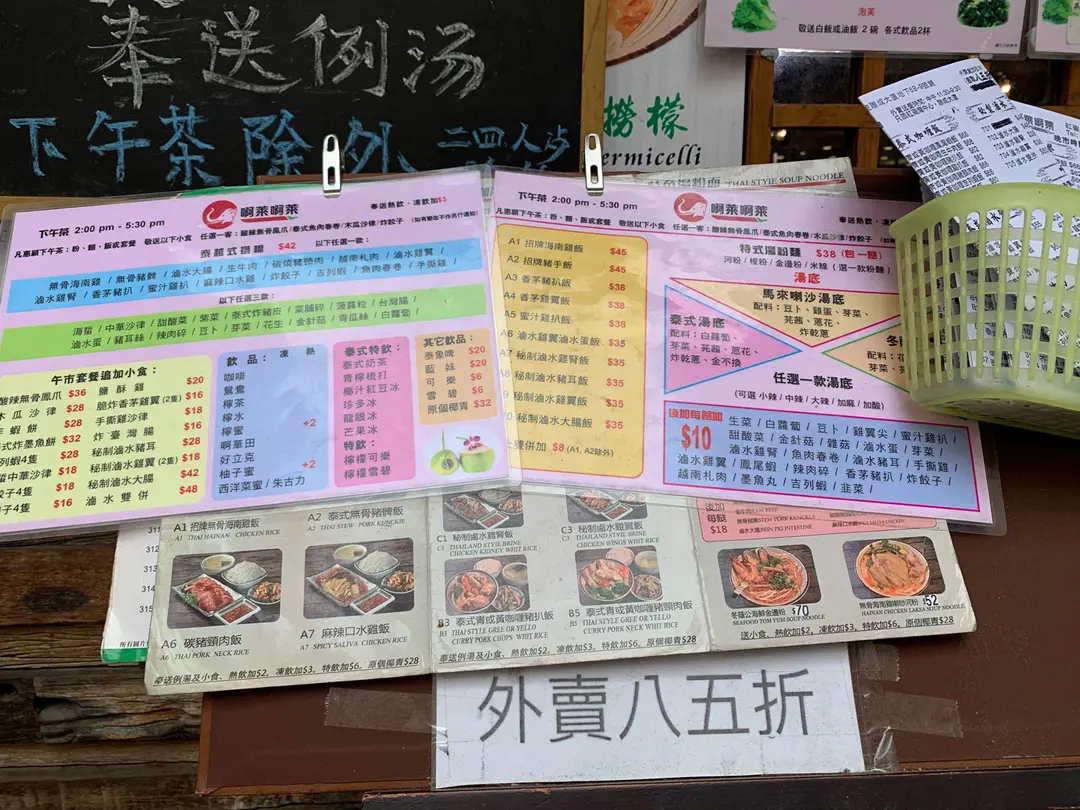 奉送例湯
下午茶除外
泡芙
敬送白飯或油飯 2 碗 各式飲品2杯
撈檬
ermicelli
THAI STYIE SOUP NOODLE
下午茶 2:00 pm - 5:30 pm
啊萊啊萊
奉送熱飲，凍飲加$3
凡惠顧下午茶：粉、麵、飯或套餐 敬送以下小食 任選一客：酸辣無骨鳳爪/泰式魚肉春卷/木瓜沙律/炸餃子
泰越式撈檬 $42 以下任選一款：
無骨海南雞 / 無骨豬髀 / 滷水大腸 / 生牛肉 / 碳燒豬頸肉 / 越南札肉 / 滷水雞翼 /
滷水雞腎 / 香茅豬扒 / 蜜汁雞扒 / 麻辣口水雞 / 炸餃子 / 吉列蝦 / 魚肉春卷 / 手撕雞 /
以下任選三款：
海蜇 / 中華沙律 / 甜酸菜 / 紫菜 / 泰式炸豬皮 / 菜脯碎 / 菠蘿粒 / 台灣腸 /
滷水蛋 / 豬耳絲 / 辣肉碎 / 豆卜 / 芽菜 / 花生 / 金針菇 / 青瓜絲 / 白蘿蔔 /
午市套餐追加小食：
酸辣無骨鳳爪 $36
木瓜沙律 $28
蝦餅 $28
式炸墨魚餅 $32
列蝦4隻 $28
中華沙律 $18
餃子4隻 $18
$16
鹽酥雞 $20
脆炸香茅雞翼(2隻) $16
手撕雞沙律 $18
炸臺灣腸 $16
秘制滷水豬耳 $28
秘制滷水雞翼(2隻) $18
秘制滷水大腸 $42
滷水雙併 $48
飲品： 凍 熱
咖啡
鴛鴦
檸茶
檸水
檸蜜 +2
啊華田
好立克
柚子蜜 +2
西洋菜蜜 / 朱古力
泰式特飲：
泰式奶茶
青檸梳打
椰汁紅豆冰
珍多冰
龍眼冰
芒果冰
特飲：
檸檬可樂
檸檬雪碧
其它飲品：
泰象啤 $20
藍妹 $20
可樂 $6
雪碧 $6
原個椰青 $32
下午茶 2:00 pm - 5:30 pm
啊萊啊萊
奉送熱飲，凍
凡惠顧下午茶：粉、麵、飯或套餐 敬送以下小食 任選一客：酸辣無骨鳳爪/泰式魚肉春卷/木瓜沙律/炸餃子
A1 招牌海南雞飯 $45
A2 招牌豬手飯 $45
A3 香茅豬扒飯 $38
A4 香茅雞翼飯 $38
A5 蜜汁雞扒飯 $38
A6 滷水雞翼滷水蛋飯 $38
A7 秘制滷水雞腎飯 $35
秘制滷水豬耳飯 $35
秘制滷水雞翼飯 $35
秘制滷水大腸飯 $35
雙併加 $8 (A1, A2除外)
特式湯粉麵 $38 (包一餸)
河粉 / 檬粉 / 金邊粉 / 米線 (選一款粉麵)
湯底
馬來喇沙湯底
配料：豆卜、雞蛋、芽菜、
芫茜、蔥花、
炸乾蔥
泰式湯底
配料：白蘿蔔、
芽菜、芫茜、蔥花、
炸乾蔥、金不換
冬
配料：花
芽菜、芫
任選一款湯底
(可選 小辣 / 中辣 / 大辣 / 加麻 / 加酸)
後加每餸加
$10
生菜 / 白蘿蔔 / 豆卜 / 雞翼尖 / 蜜汁雞扒 /
甜酸菜 / 金針菇 / 雜菇 / 滷水蛋 / 芽菜 /
滷水雞腎 / 魚肉春卷 / 滷水豬耳 / 手撕雞 /
滷水雞翼 / 鳳尾蝦 / 辣肉碎 / 香茅豬扒 / 炸餃子 /
越南札肉 / 墨魚丸 / 吉列蝦 / 韭菜 /
A1 招牌無骨海南雞飯
A1 THAI HAINAN CHICKEN RICE
A2 泰式無骨豬髀飯
A2 THAI STEW PORK KUNCKIE
C1 秘制滷水雞腎飯
C1 THAILAND STYIE BRINE
CHICKEN KIDNEY WHIT RICE
C3 秘制滷水雞翼飯
C3 THAILAND STYIE BRINE
CHICKEN WINGS WHIT RICE
後加
每餸
$18
A6 碳豬頸肉飯
A6 THAI PORK NECK RICE
A7 麻辣口水雞飯
A7 SPICY SALIVA CHICKEN RICE
B3 泰式青或黃咖喱豬扒飯
B3 THAI STYLE GREE OR YELLO
CURRY PORK CHOPS WHIT RICE
B5 泰式青或黃咖喱豬頸肉飯
B5 THAI STYLE GREE OR YELLO
CURRY PORK NECK WHIT RICE
冬蔭公海鮮金邊粉 $70
SEAFOOD TOM YUM SOUP NOODLE
無骨海南雞喇沙河粉 $52
HAINAN CHICKEN LAKSA SOUP NOODLE
奉送例湯及小食、熱飲加$2、凍飲加$3、特飲加$6、原個椰青$28
奉送例湯及小食、熱飲加$2、凍飲加$3、特飲加$6、原個椰青$28
送小食、熱飲加$2、凍飲加$3、特飲加$6、原個椰青$28
312
313
314
315
外賣八五折